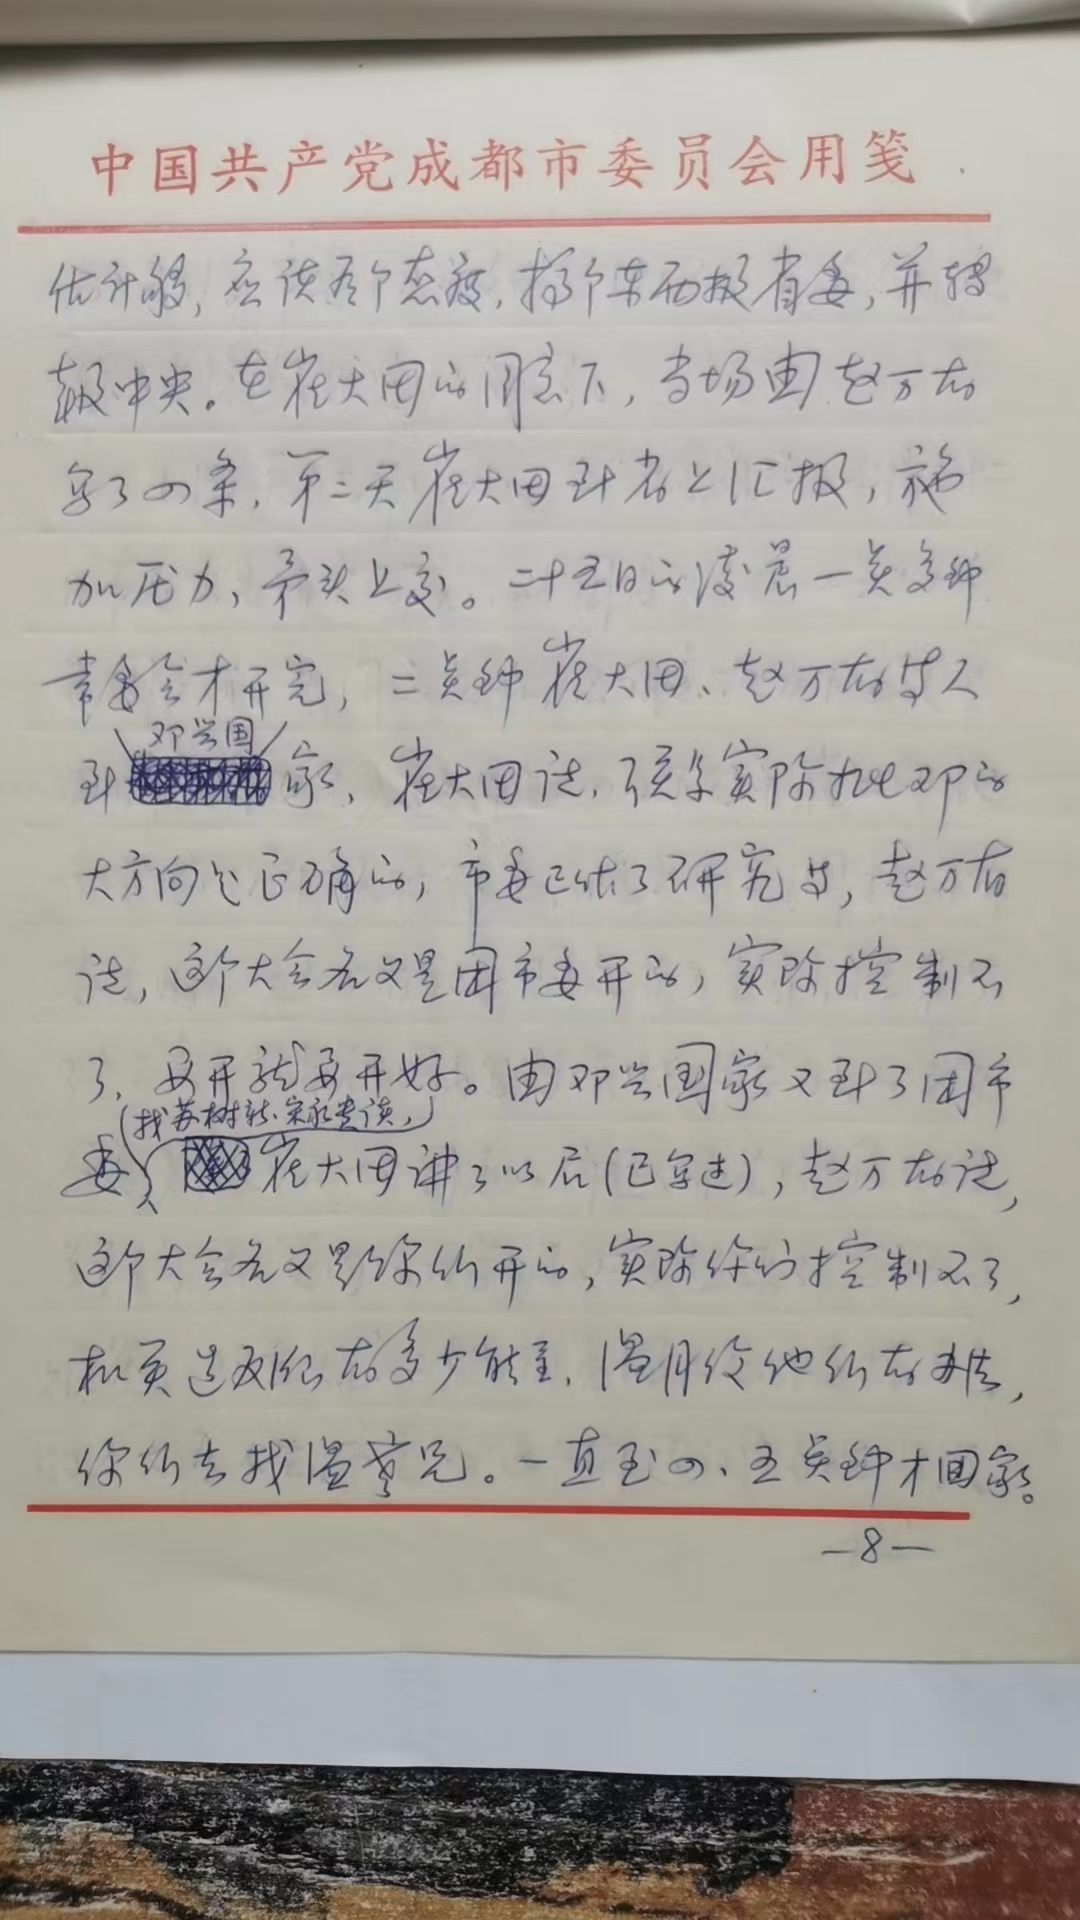 中国共产党成都市委员会用笺
估计够，应该有个态度，搞个东西报省委，并转
报中央。在崔大田的同意下，当场由赵万友
写了四条，第二天崔大田到省上汇报，施
加压力，矛头上交。二十五日的凌晨一点多钟
常委会才开完，二点钟崔大田、赵万友等人
邓兴国
到 家，崔大田说，实际批邓的
大方向是正确的，市委已作了研究等，赵万友
说，这个大会名义是团市委开的，实际控制不
了，要开就要开好。由邓兴国家又到了团市
找苏树新、宋永贵谈，
委 崔大田讲了以后(已写过)，赵万友说，
这个大会名义是你们开的，实际你们控制不了，
机员造反派有多少能量，温月给他们有办法，
你们去找温 。一直至四、五点钟才回家。
—8—